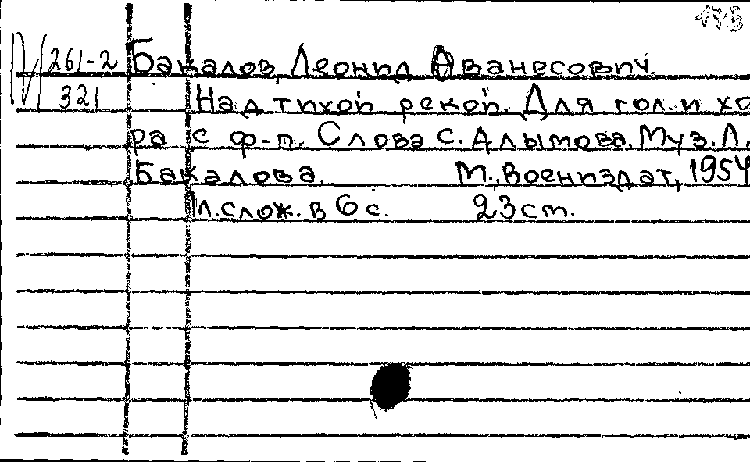 261-2 Бакалов, Леонид Ованесович.
321 Над тихой рекой. Для гол. и хо
ра с ф-п. Слова С. Алымова. Муз. Л.
Бакалова. М., Воениздат, 1954
Л. слож. в 6 с. 23 см.